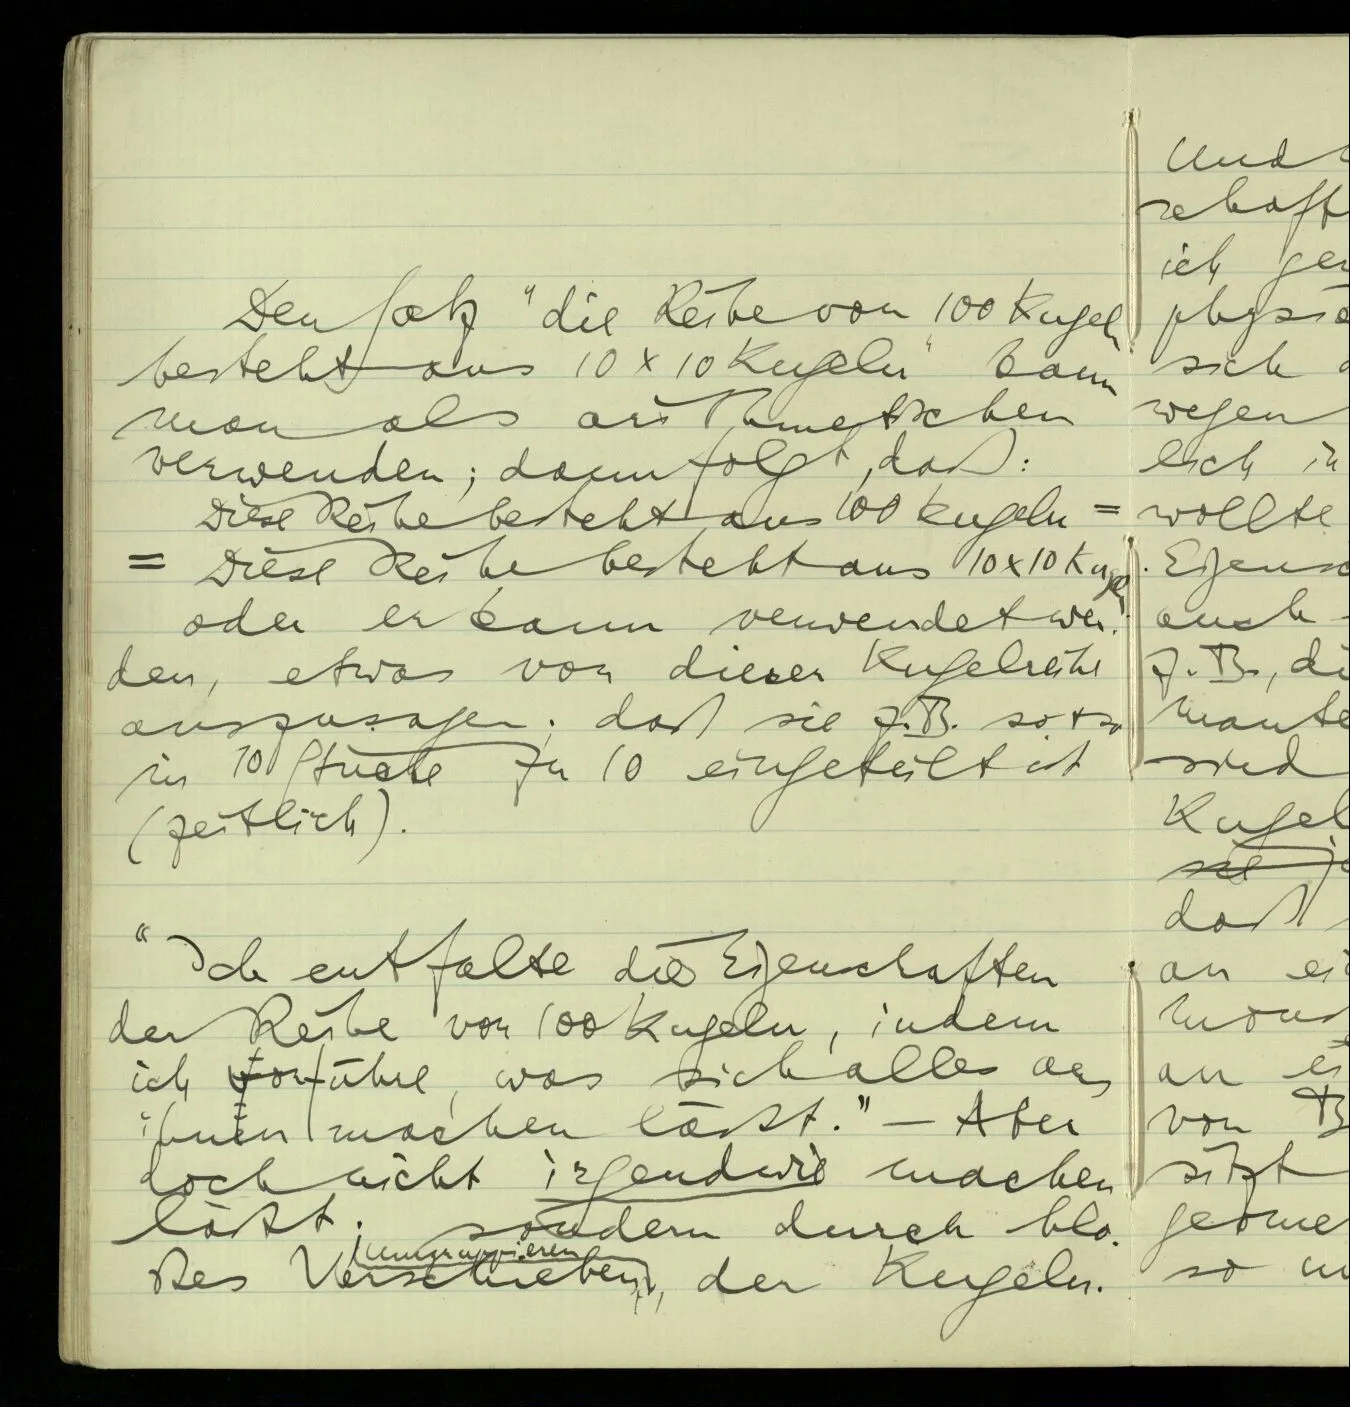 Den Satz "die Reihe von 100 Kugeln
besteht aus 10 x 10 Kugeln" kann
man als arithmetischen
verwenden; dann folgt, daß:
Diese Reihe besteht aus 100 Kugeln =
= Diese Reihe besteht aus 10x10 Kugeln
oder er kann verwendet wer-
den, etwas von dieser Kugelreihe
auszusagen; daß sie z.B. so + so
in 10 Stücke zu 10 eingeteilt ist
(zeitlich).
"Ich entfalte die Eigenschaften
der Reihe von 100 Kugeln, indem
ich vorführe, was sich alles aus
ihnen machen läßt." — Aber
doch nicht irgendwie machen
läßt; sondern durch blo-
(umgruppieren
ßes Verschieben), der Kugeln.
Und
schaft
ich
sich
wegen
lich in
wollte
auch
z.B., di
sind
Kugel
sie
daß
an
an
von B
sitzt
so